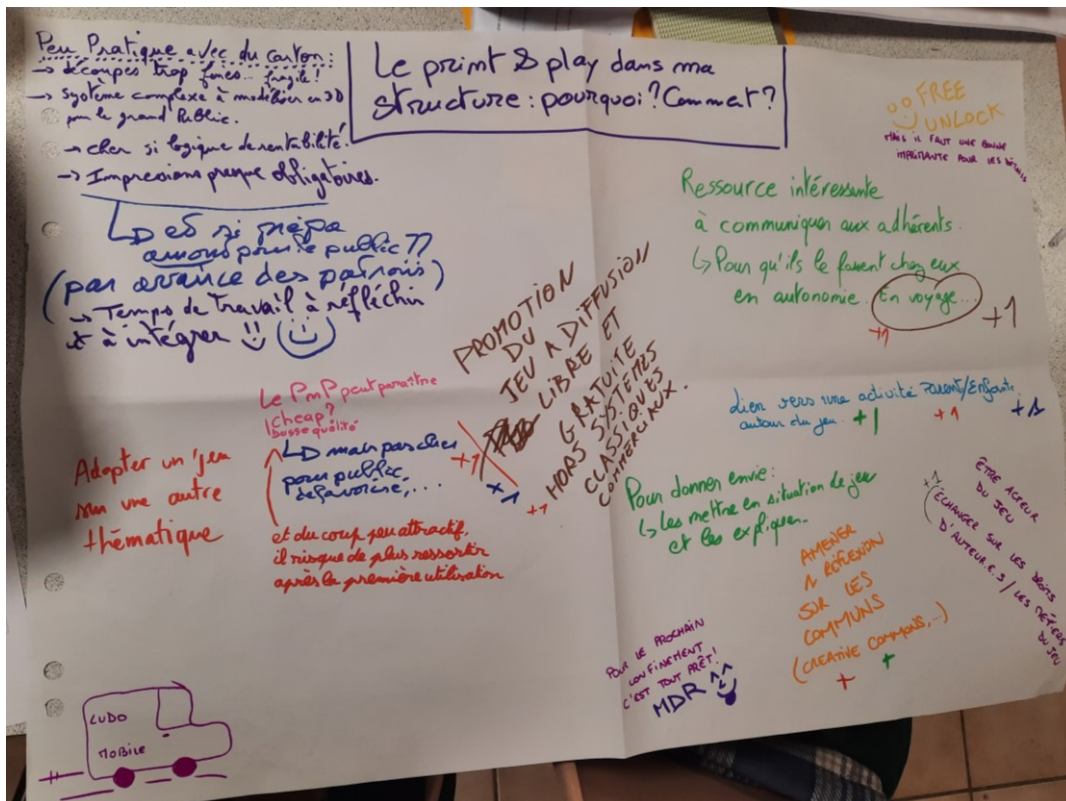 Le print & play dans ma
structure : pourquoi ? Comment ?
Peu Pratique avec du carton :
→ découpes trop fines... fragile !
→ Système complexe à modéliser en 3D
par le grand Public.
→ cher si logique de rentabilité !
→ Impressions presque obligatoires.
↳ et si prépa
amont pour le public ??
(par avance des patrons)
→ Temps de travail à réfléchir
et à intégrer !!
FREE
UNLOCK
MAIS IL FAUT UNE BONNE
IMPRIMANTE POUR LES DÉTAILS
Ressource intéressante
à communiquer aux adhérents.
↳ Pour qu'ils le fassent chez eux
en autonomie. En voyage...
+1
+1
PROMOTION
DU
JEU A DIFFUSION
LIBRE ET
GRATUITE
HORS SYSTÈMES
CLASSIQUES
COMMERCIAUX.
+1
+1
+1
Le PnP peut paraître
cheap ?
basse qualité
↳ mais pas cher
pour public
défavorisé, ...
et du coup peu attractif,
il risque de plus ressortir
après la première utilisation
Adapter un jeu
sur une autre
thématique
Lien vers une activité Parent/Enfants
autour du jeu. +1 +1 +1
Pour donner envie :
↳ Les mettre en situation de jeu
et les expliquer.
ÊTRE ACTEUR
DU JEU
+1
ÉCHANGER SUR LES DROITS
D'AUTEUR.E.S / LES MÉTIERS
DU JEU
AMENER
1 RÉFLEXION
SUR LES
COMMUNS
(CREATIVE COMMONS, ...)
+ +
POUR LE PROCHAIN
CONFINEMENT
C'EST TOUT PRÊT !
MDR ^^
LUDO
MOBILE